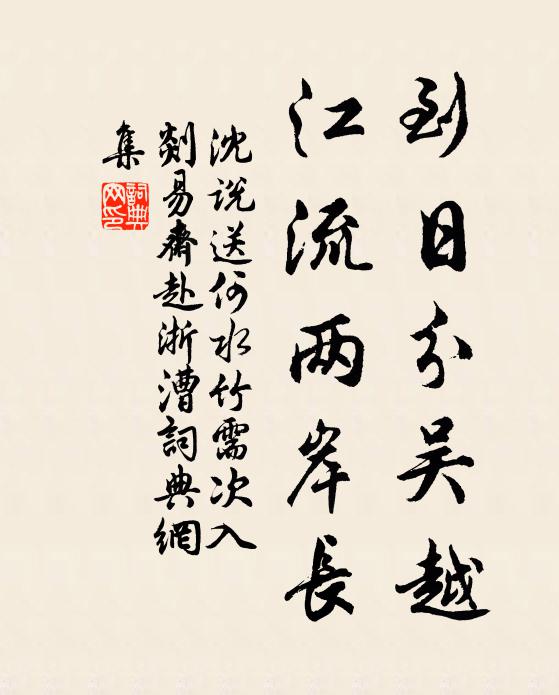 到日分吴越
江流两岸長
沈说送何水竹需次入
剡易齋赴浙漕詞典網
集
詞典
网印